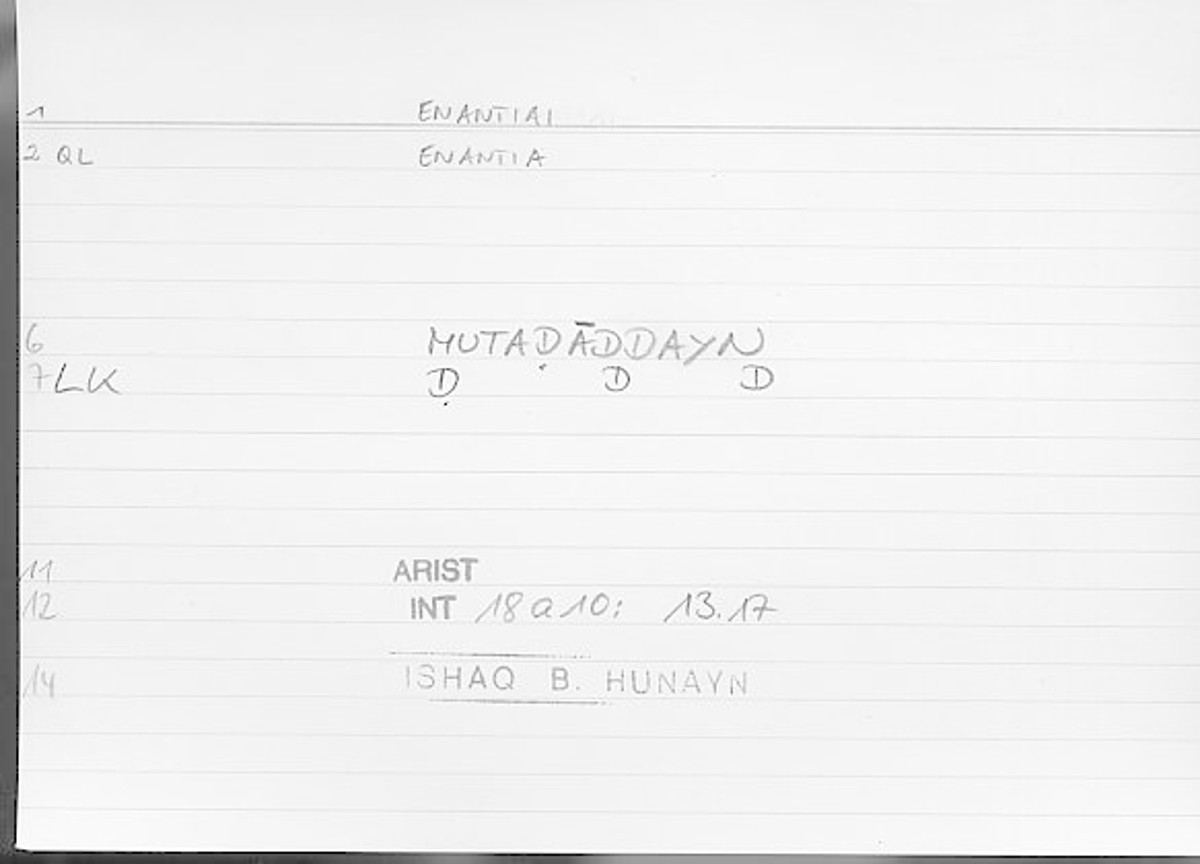 1 ENANTIAI
2 QL ENANTIA
6 MUTAḌĀDDAYN
7 LK Ḍ D D
11 ARIST
12 INT 18 a 10: 13.17
14 ISHAQ B. HUNAYN